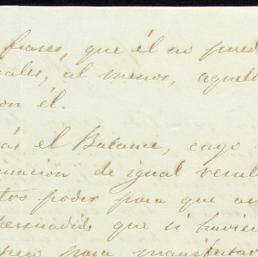 frases, que él no pued
ales, al menos, aquell
on él.
ás el Balance, cuyo
uacion de igual resul
tro poder para que a
persuadido que si hubie
para manifestar